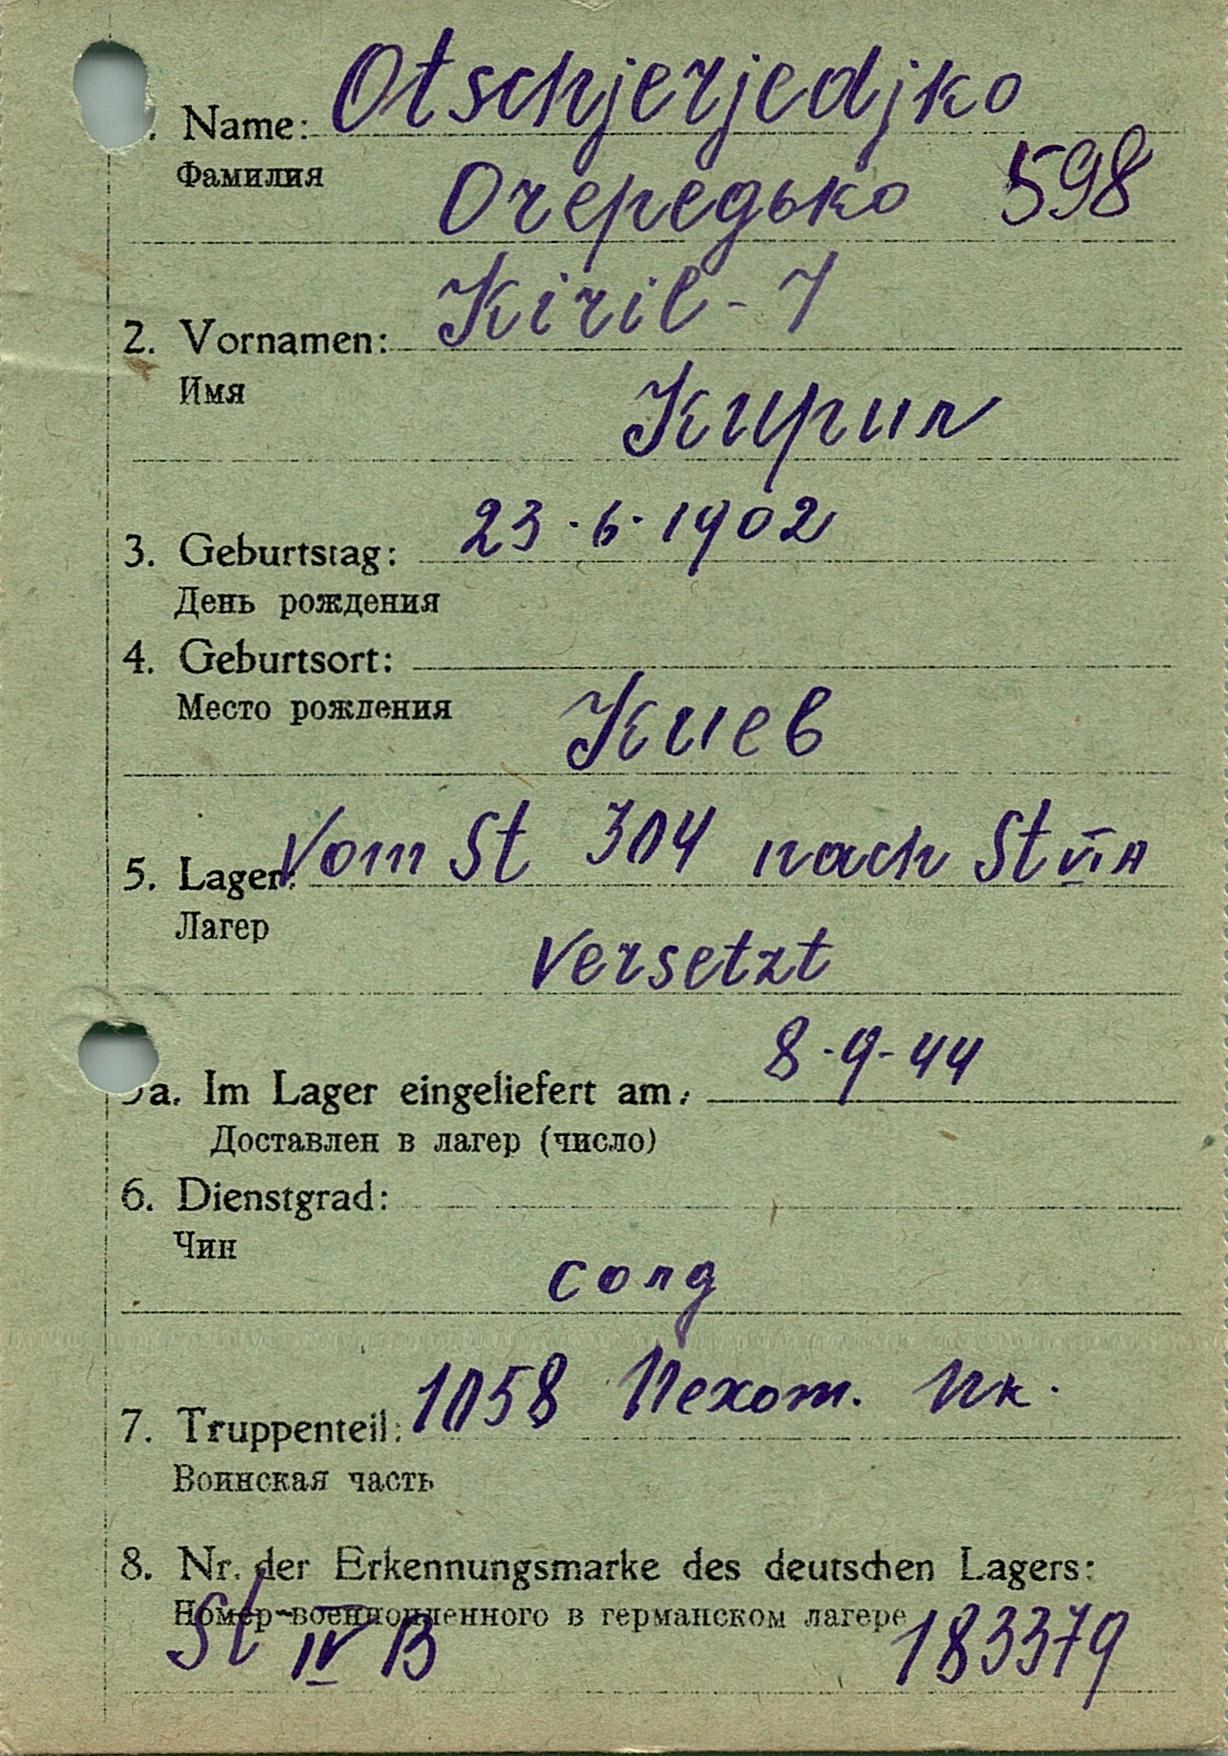 . Name: Otschjerjedjko
Фамилия
Очередько 598
2. Vornamen: Kiril - I
Имя
Кирил
3. Geburtstag: 23.6.1902
День рождения
4. Geburtsort:
Место рождения
Киев
5. Lager: Vom St 304 nach St VI A
Лагер
versetzt
5a. Im Lager eingeliefert am: 8-9-44
Доставлен в лагер (число)
6. Dienstgrad:
Чин
солд
7. Truppenteil: 1058 Пехот. Пк.
Воинская часть
8. Nr. der Erkennungsmarke des deutschen Lagers:
Номер военнопленного в германском лагере
St IV B 183379